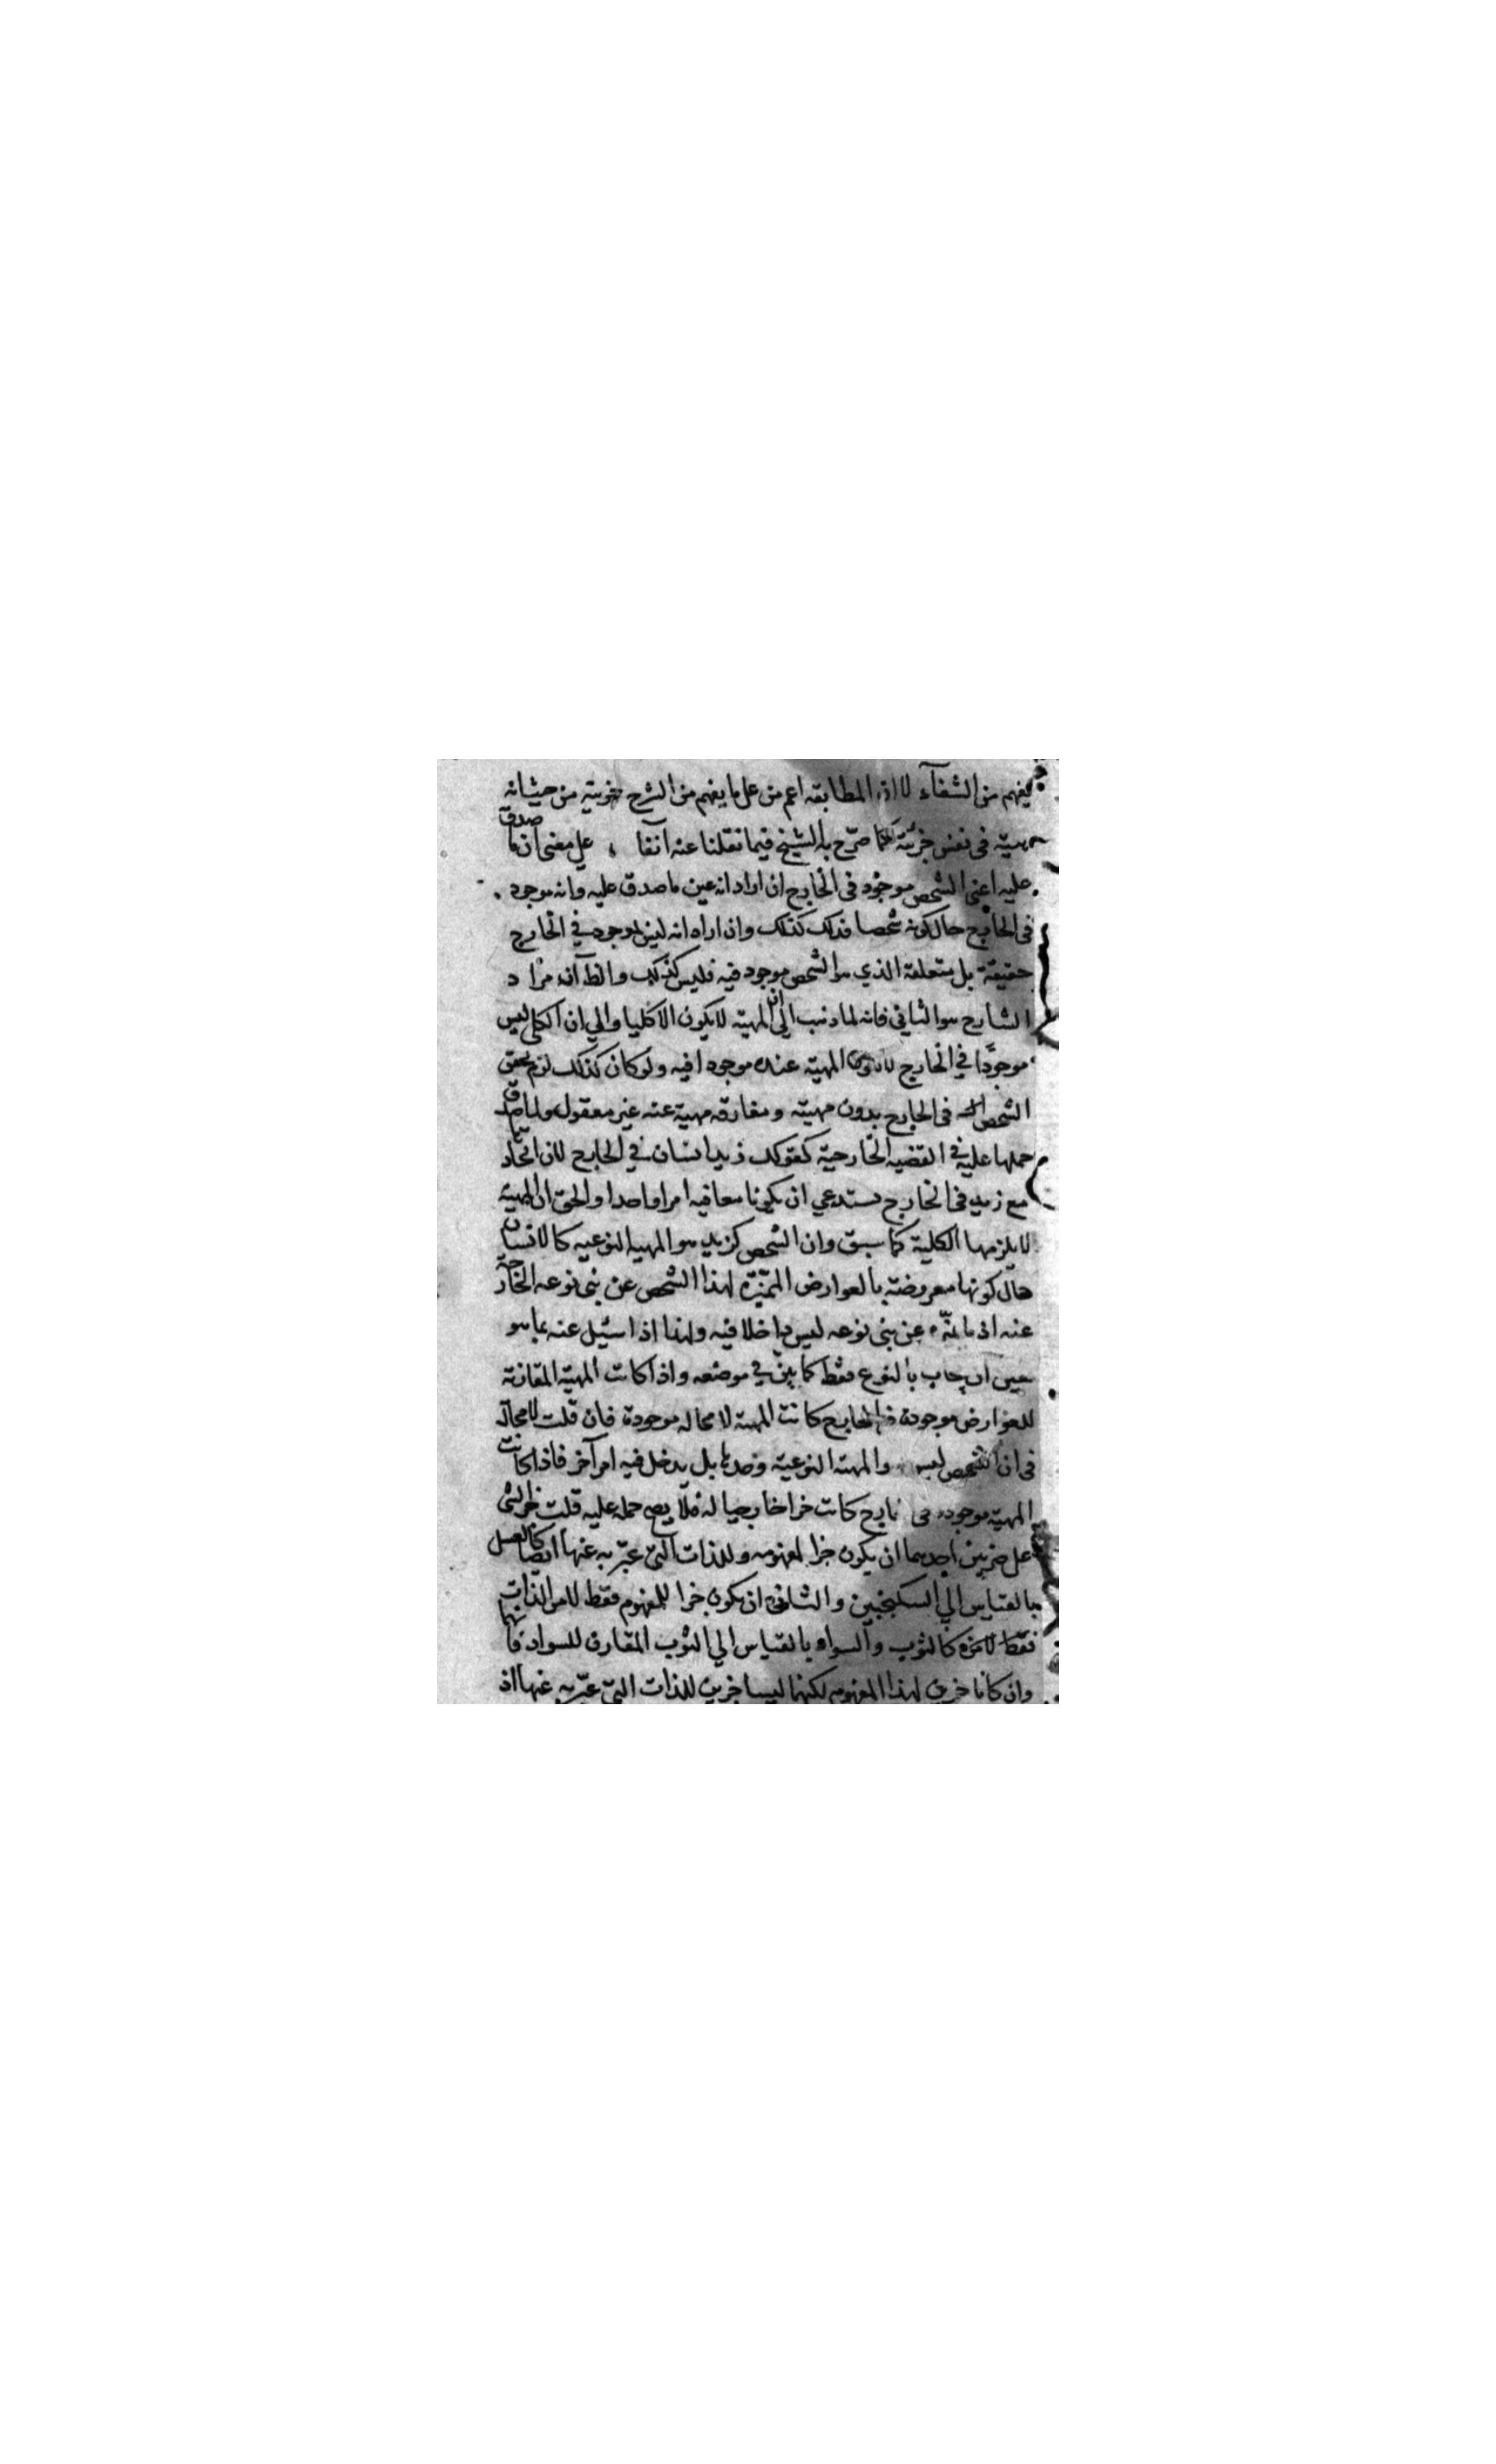 يفهم من الشفآء لا اذ المطابقه اعم من على ما يفهم من الشرح من حيث انه
مهية فى نفس كما صرّح به الشيخ فيما نقلنا عنه آنفا على معنى ان ما صدق
عليه اعنى الشخص موجود فى الخارج ان اراد انه عين ما صدق عليه وانه موجود
فى الخارج حال كونه شخصا فذلك كذلك وان اراد انه ليس بموجود في الخارج
حقيقة بل متعلقه الذي هو الشخص موجود فيه فليس كذلك والظ آنه مراد
الشارح هو الثاني فانه لما ذهب الي ان المهية لا يكون الا كليا والي ان الكلى ليس
موجودًا في الخارج المهية عنده موجودا فيه ولو كان كذلك لزم تحقق
الشخص فى الخارج بدون مهيته ومفارقه مهية عنه غير معقول ولما صدق
حملها عليه في القضيه الخارجية كقولك زيد انسان في الخارج لان اتحاد
مع زيد فى الخارج يستدعي ان يكونا معا فيه امرا واحدا والحق ان المهية
لا يلزمها الكلية كما سبق وان الشخص كزيد هو المهيه النوعيه كالانسان
حال كونها معروضة بالعوارض المميّزة لهذا الشخص عن بنى نوعه الخارجة
عنه اذ ما عن بنى نوعه ليس داخلا فيه ولهذا اذا سئل عنه بما هو
ان يجاب بالنوع فقط كما بين في موضعه واذا كانت المهية المقارنة
للعوارض موجودة فى الخارج كانت المهية لا محاله موجودة فان قلت لا محالة
فى ان الشخص ليس والمهية النوعية وحدها بل يدخل فيه امر آخر فاذا كانت
المهية موجوده فى كانت خرا خارجيا له فلا يصح حمله عليه قلت خر الشئ
على ضربين احدهما ان يكون خرا لمفهومه وللذات التى عبّر به عنها ايضا كالعسل
بالقياس الي السكنجبين والثانى ان يكون خرا للمفهوم فقط لا من الذات
فقط كالثوب والسواد بالقياس الي الثوب المقارن للسواد فانهما
وان كانا خرين لهذا المفهوم لكنهما ليسا خرين للذات التى عبّر به عنها اذ